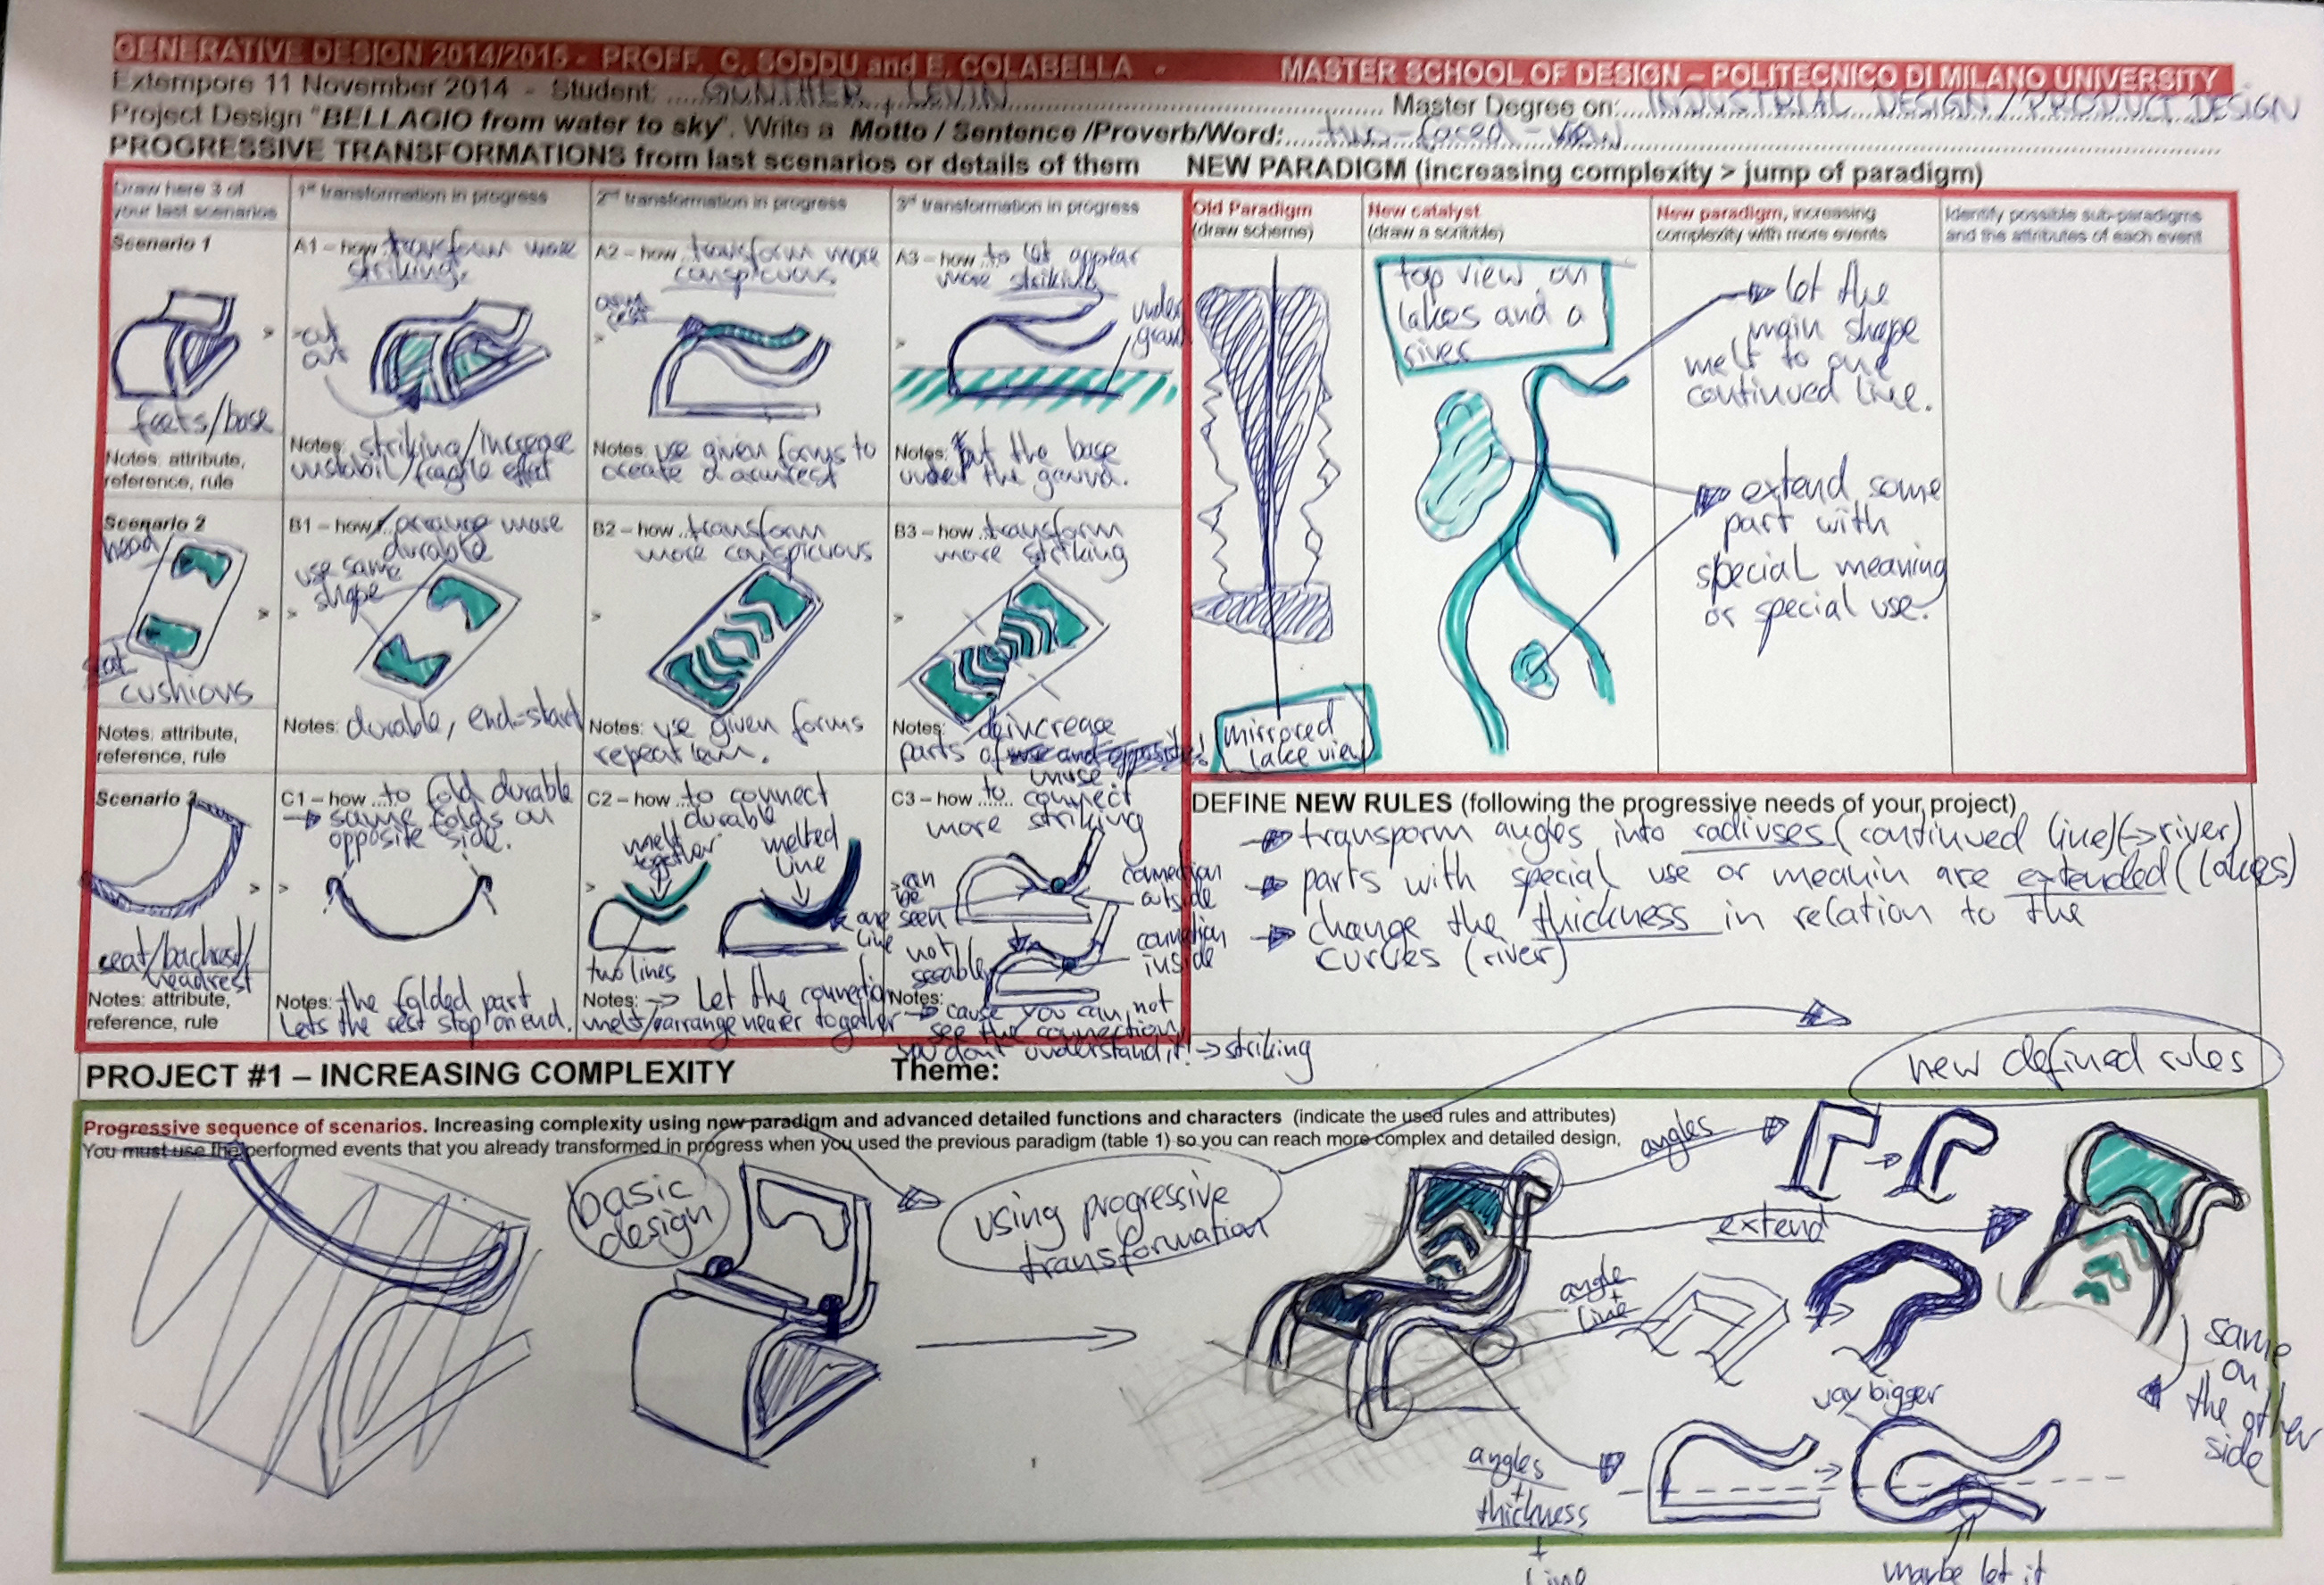 GENERATIVE DESIGN 2014/2015 - PROFF. C. SODDU and E. COLABELLA - MASTER SCHOOL OF DESIGN – POLITECNICO DI MILANO UNIVERSITY
Extempore 11 November 2014 - Student: GÜNTHER, LEVIN Master Degree on: INDUSTRIAL DESIGN / PRODUCT DESIGN
Project Design "BELLAGIO from water to sky". Write a Motto / Sentence /Proverb/Word: two-faced-view
PROGRESSIVE TRANSFORMATIONS from last scenarios or details of them
Draw here 3 of
your last scenarios
1st transformation in progress
2nd transformation in progress
3rd transformation in progress
Scenario 1
feets/base
Notes: attribute,
reference, rule
A1 – how transform more
striking.
-cut
out
Notes: striking/increase
unstabil/fragile effect
A2 – how transform more
conspicuous
Notes: use given forms to
create a armrest
A3 – how to let appear
more striking
under
Notes: Put the base
under the ground.
Scenario 2
head
seat
cushions
Notes: attribute,
reference, rule
B1 – how arrange more
durable
use same
shape
Notes: durable, end=start
B2 – how transform
more conspicuous
Notes: use given forms
repeat em.
B3 – how transform
more striking
Notes:
parts of
Scenario 3
seat/backrest/
headrest
Notes: attribute,
reference, rule
C1 – how to fold durable
→ same folds on
opposite side.
Notes: the folded part
lets the rest stop on end.
C2 – how to connect
durable
melt
together
melted
line
one
line
two lines
Notes: → Let the connection
melt/arrange nearer together
C3 – how to connect
more striking
can
be
seen
connection
outside
not
seeable
connection
inside
Notes: → cause you can not
see the connection
you don't understand it! → striking
NEW PARADIGM (increasing complexity > jump of paradigm)
Old Paradigm
(draw scheme)
New catalyst
(draw a scribble)
New paradigm, increasing
complexity with more events
Identify possible sub-paradigms
and the attributes of each event
mirrored
lake view
top view on
lakes and a
river
let the
main shape
melt to one
continued line.
extend some
part with
special meaning
or special use.
DEFINE NEW RULES (following the progressive needs of your project)
→ transporm angles into radiuses (continued line) (→ river)
→ parts with special use or meanin are extended (lakes)
→ change the thickness in relation to the
curves (river)
PROJECT #1 – INCREASING COMPLEXITY Theme:
Progressive sequence of scenarios. Increasing complexity using new paradigm and advanced detailed functions and characters (indicate the used rules and attributes)
You must use the performed events that you already transformed in progress when you used the previous paradigm (table 1) so you can reach more complex and detailed design,
basic
design
using progressive
transformation
new defined rules
angles
extend
angle
+
line
way bigger
same
on
the other
side
angles
+
thickness
+
line
maybe let it
1